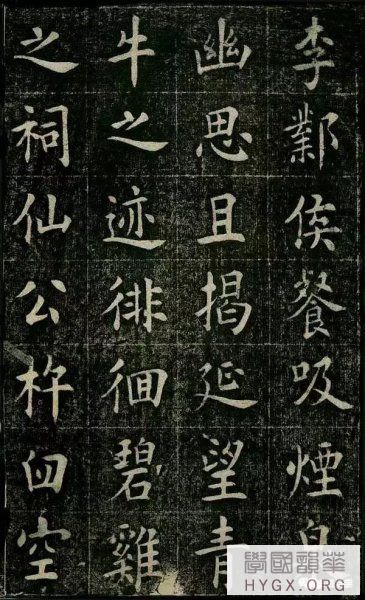 李鄴侯餐吸煙
幽思且揭延望青
牛之迹徘徊碧雞
之祠仙公杵臼空
華韻國學
HYGX.ORG